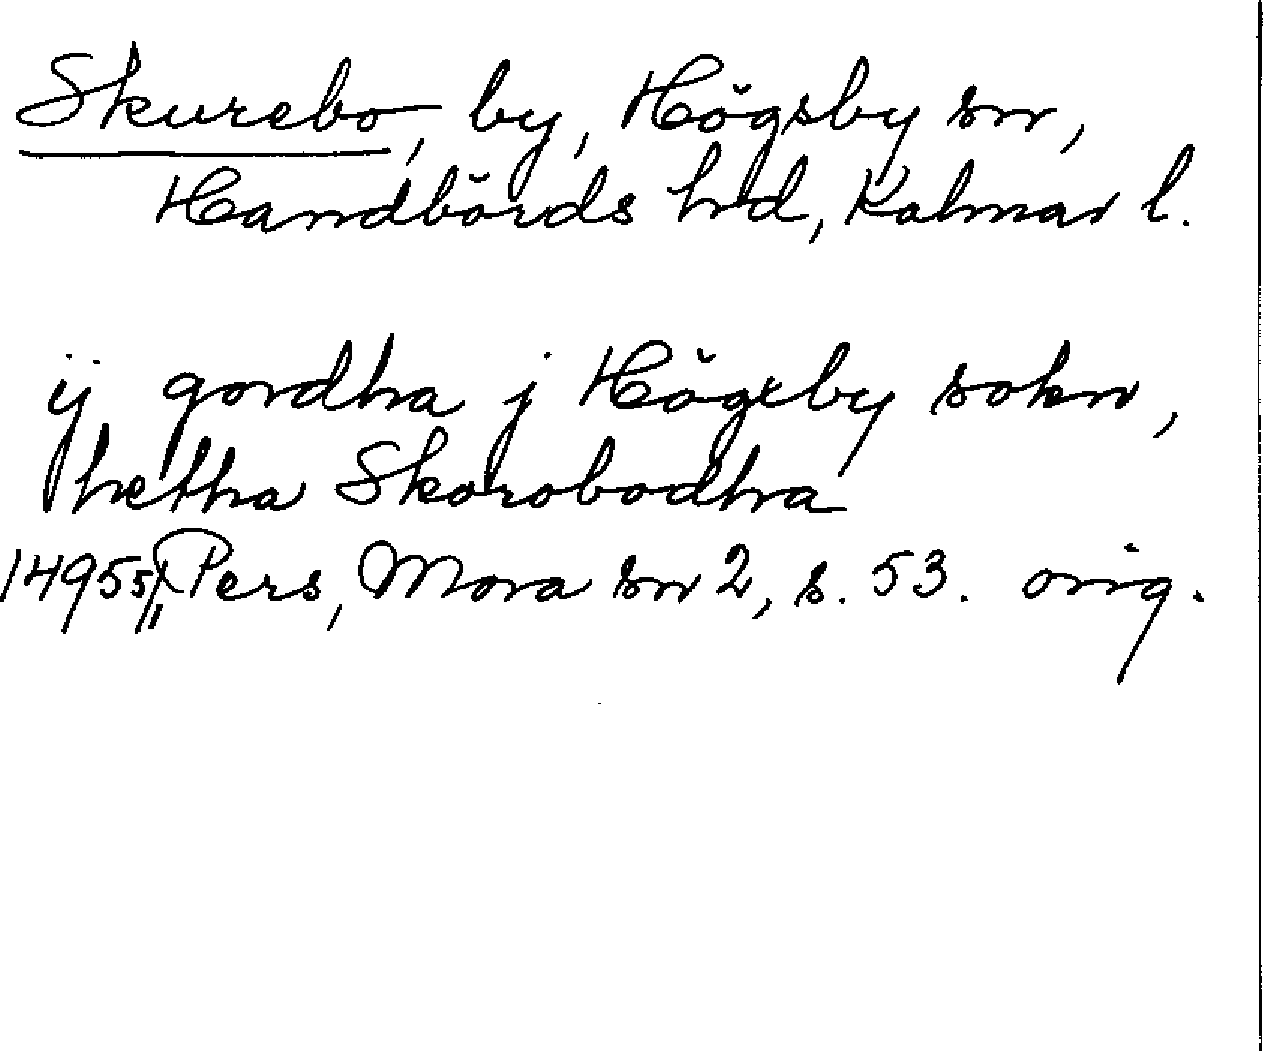 Skurebo, by, Högsby sn,
Handbörds hd, Kalmar l.
ij gordha j Högxby sokn,
hetha Skorobodha
1495 5/11 Pers, Mora sn 2, s. 53. orig.